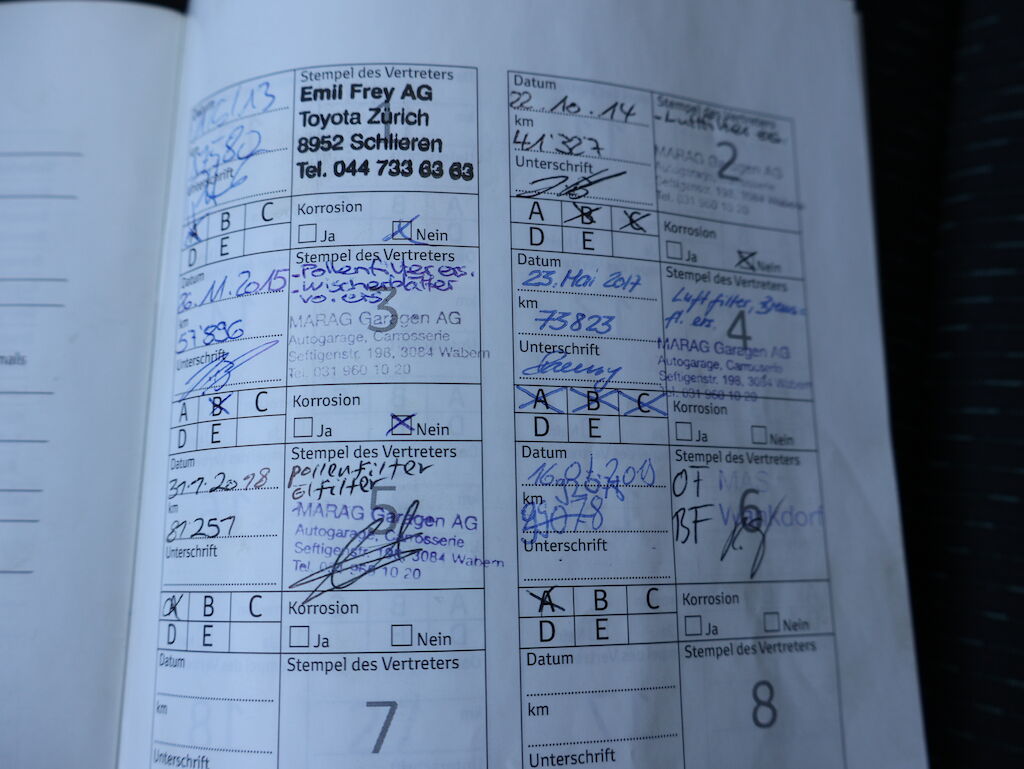 mails
Datum
Stempel des Vertreters
Emil Frey AG
Toyota Zürich
8952 Schlieren
Tel. 044 733 63 63
1
Unterschrift
A B C
D E
Korrosion
Ja Nein
Datum
22.10.14
km
41'327
Unterschrift
Stempel des Vertreters
2
MARAG Garagen AG
Autogarage, Carrosserie
Seftigenstr. 198, 3084 Wabern
Tel. 031 960 10 20
A B C
D E
Korrosion
Ja Nein
Datum
26.11.2015
km
57'896
Unterschrift
Stempel des Vertreters
-Pollenfilter ers.
-wischerblätter
vo. ers
3
MARAG Garagen AG
Autogarage, Carrosserie
Seftigenstr. 198, 3084 Wabern
Tel. 031 960 10 20
A B C
D E
Korrosion
Ja Nein
Datum
23. Mai 2017
km
73823
Unterschrift
Stempel des Vertreters
Luftfilter, Brems-
fl. ers.
4
MARAG Garagen AG
Autogarage, Carrosserie
Seftigenstr. 198, 3084 Wabern
Tel. 031 960 10 20
A B C
D E
Korrosion
Ja Nein
Datum
31.7.2018
km
81257
Unterschrift
Stempel des Vertreters
pollenfilter
Elfilter
5
MARAG Garagen AG
Autogarage, Carrosserie
Seftigenstr. 198, 3084 Wabern
Tel. 031 960 10 20
A B C
D E
Korrosion
Ja Nein
Datum
km
Unterschrift
Stempel des Vertreters
OF MAS
BF
6
A B C
D E
Korrosion
Ja Nein
Datum
km
Unterschrift
Stempel des Vertreters
7
Datum
km
Unterschrift
Stempel des Vertreters
8